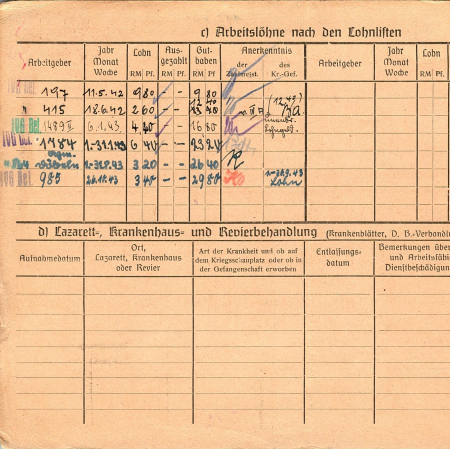 c) Arbeitslöhne nach den Lohnlisten
Arbeitgeber Jahr Monat Woche Lohn RM Pf. Aus- gezahlt RM Pf. Gut- haben RM Pf. Anerkenntnis der Zahlmeist. des Kr.-Gef. Arbeitgeber Jahr Monat Woche Lohn RM
197 11.5.42 9 80 - - 9 80
" 415 18.6.42 2 60 - -
106 Bel. 1489 II 6.1.43 - - 16 80
106 Bel. 1484 1.-31.1.43 6 40 - - 23 20
1.-31.8.43 3 20 - - 26 40
106 Bel. 985 26.10.43 3 40 - - 29 80 1.-31.9.43 Lohn
d) Lazarett-, Krankenhaus- und Revierbehandlung (Krankenblätter, D. B.-Verhandlu
Aufnahmedatum Ort, Lazarett, Krankenhaus oder Revier Art der Krankheit und ob auf dem Kriegsschauplatz oder ob in der Gefangenschaft erworben Entlassungs- datum Bemerkungen über und Arbeitsfähi Dienstbeschädigun